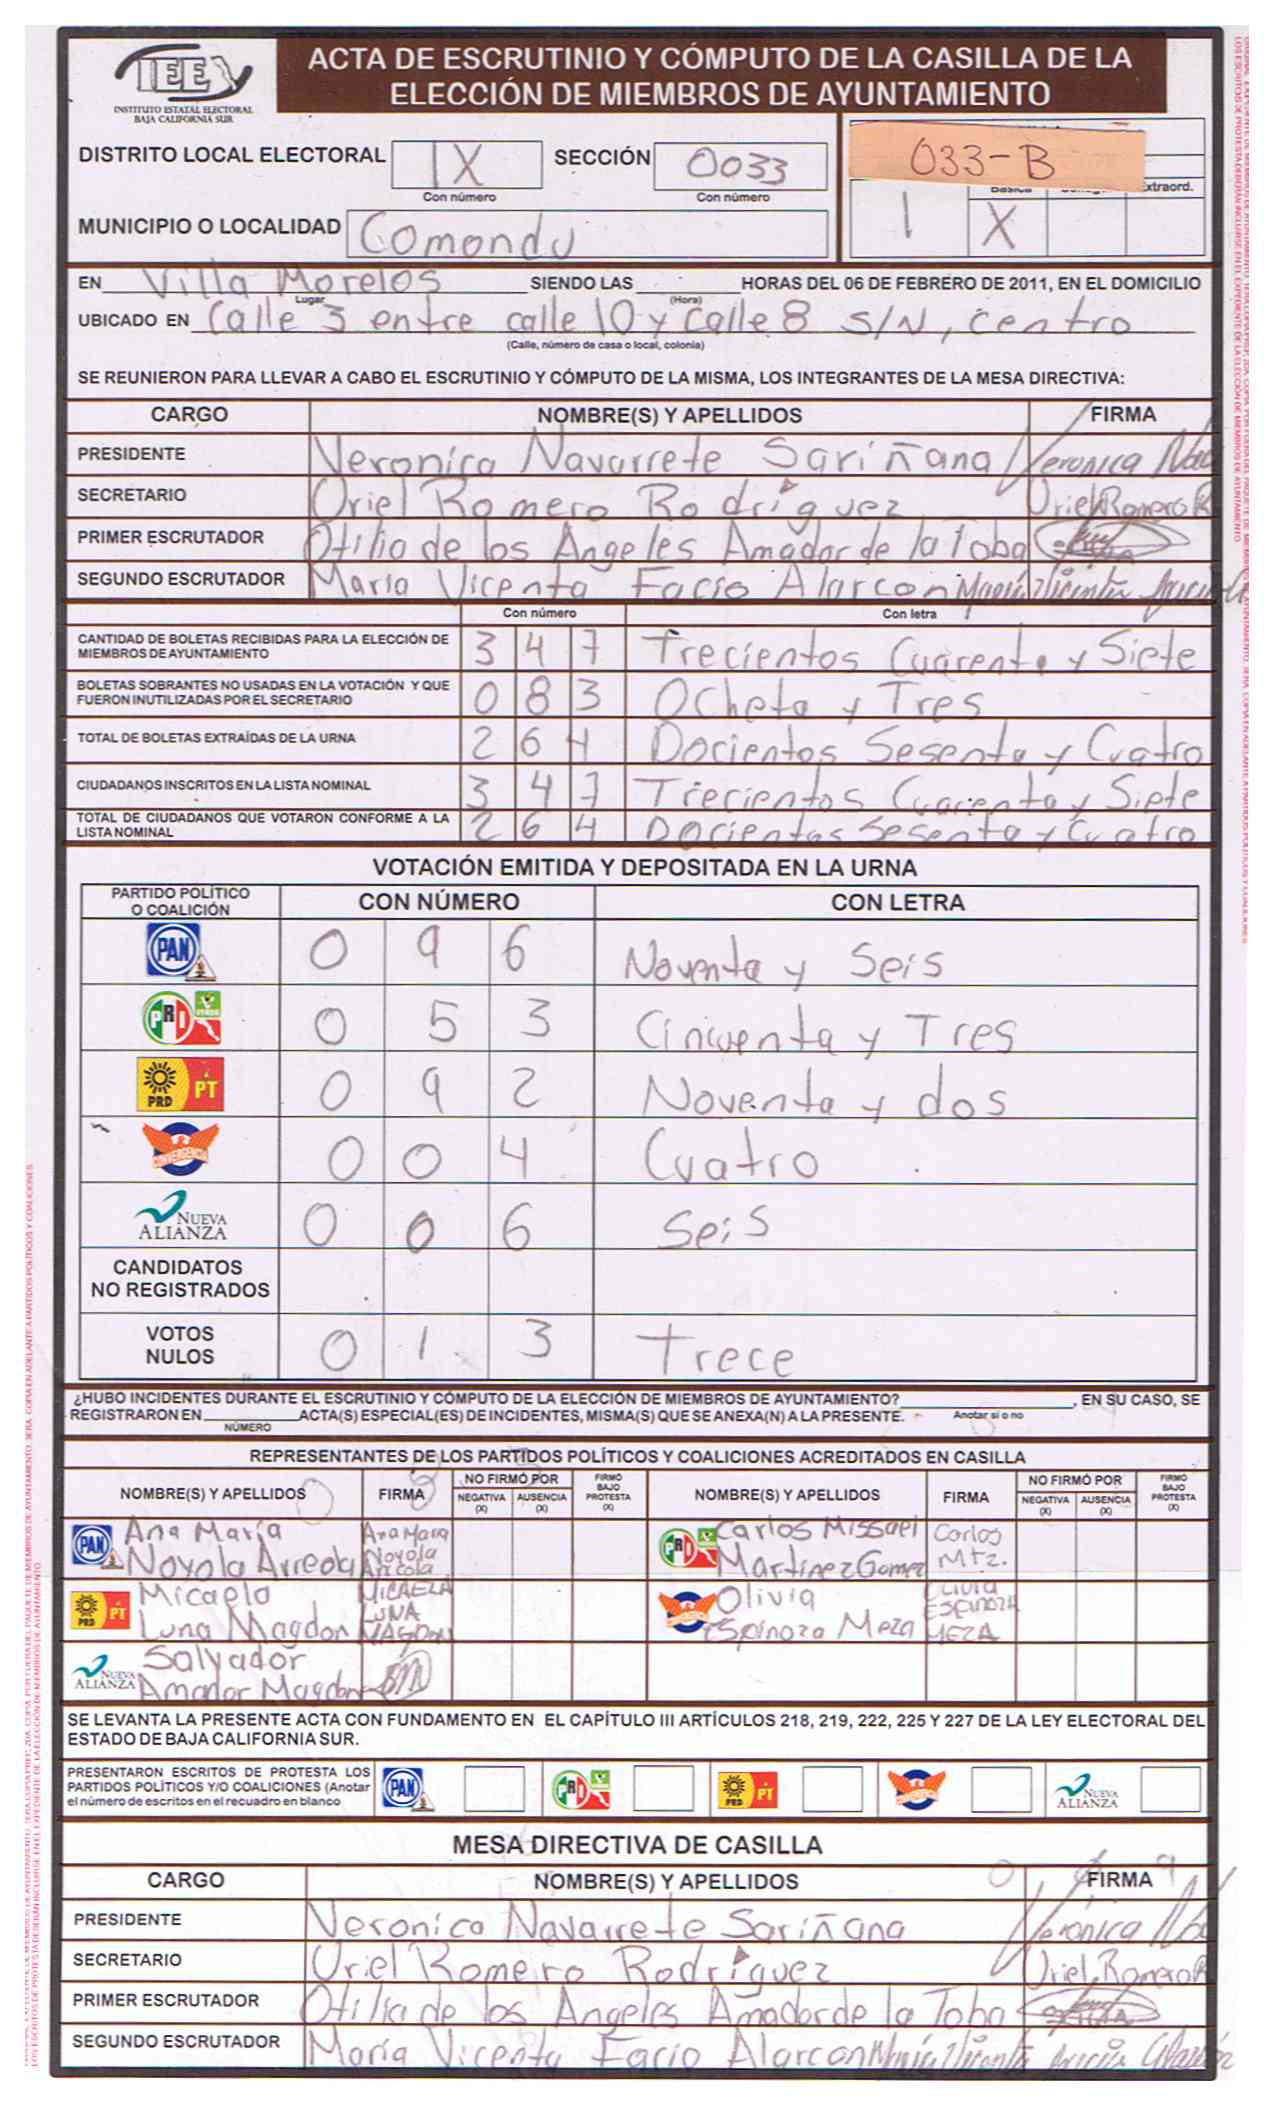 IEE
INSTITUTO ESTATAL ELECTORAL
BAJA CALIFORNIA SUR
ACTA DE ESCRUTINIO Y CÓMPUTO DE LA CASILLA DE LA
ELECCIÓN DE MIEMBROS DE AYUNTAMIENTO
DISTRITO LOCAL ELECTORAL IX SECCIÓN 0033
Con número Con número
033-B
Básica Extraord.
1 X
MUNICIPIO O LOCALIDAD Comondu
EN Villa Morelos SIENDO LAS HORAS DEL 06 DE FEBRERO DE 2011, EN EL DOMICILIO
Lugar (Hora)
UBICADO EN Calle 3 entre calle 10 y Calle 8 S/N, centro
(Calle, número de casa o local, colonia)
SE REUNIERON PARA LLEVAR A CABO EL ESCRUTINIO Y CÓMPUTO DE LA MISMA, LOS INTEGRANTES DE LA MESA DIRECTIVA:
CARGO NOMBRE(S) Y APELLIDOS FIRMA
PRESIDENTE Veronica Navarrete Sariñana Veronica
SECRETARIO Uriel Romero Rodríguez Uriel Romero R
PRIMER ESCRUTADOR Otilia de los Angeles Amador de la Toba
SEGUNDO ESCRUTADOR María Vicenta Facio Alarcon María Vicenta
Con número Con letra
CANTIDAD DE BOLETAS RECIBIDAS PARA LA ELECCIÓN DE
MIEMBROS DE AYUNTAMIENTO 3 4 7 Trecientos Cuarenta y Siete
BOLETAS SOBRANTES NO USADAS EN LA VOTACIÓN Y QUE
FUERON INUTILIZADAS POR EL SECRETARIO 0 8 3 Ocheta y Tres
TOTAL DE BOLETAS EXTRAÍDAS DE LA URNA 2 6 4 Docientos Sesenta y Cuatro
CIUDADANOS INSCRITOS EN LA LISTA NOMINAL 3 4 7 Trecientos Cuarenta y Siete
TOTAL DE CIUDADANOS QUE VOTARON CONFORME A LA
LISTA NOMINAL 2 6 4 Docientos Sesenta y Cuatro
VOTACIÓN EMITIDA Y DEPOSITADA EN LA URNA
PARTIDO POLÍTICO
O COALICIÓN CON NÚMERO CON LETRA
PAN 0 9 6 Noventa y Seis
PRI VERDE 0 5 3 Cincuenta y Tres
PRD PT 0 9 2 Noventa y dos
CONVERGENCIA 0 0 4 Cuatro
NUEVA ALIANZA 0 0 6 Seis
CANDIDATOS
NO REGISTRADOS
VOTOS
NULOS 0 1 3 Trece
¿HUBO INCIDENTES DURANTE EL ESCRUTINIO Y CÓMPUTO DE LA ELECCIÓN DE MIEMBROS DE AYUNTAMIENTO? , EN SU CASO, SE
REGISTRARON EN ACTA(S) ESPECIAL(ES) DE INCIDENTES, MISMA(S) QUE SE ANEXA(N) A LA PRESENTE. Anotar si o no
NÚMERO
REPRESENTANTES DE LOS PARTIDOS POLÍTICOS Y COALICIONES ACREDITADOS EN CASILLA
NOMBRE(S) Y APELLIDOS FIRMA NO FIRMÓ POR NEGATIVA (X) AUSENCIA (X) FIRMÓ BAJO PROTESTA (X) NOMBRE(S) Y APELLIDOS FIRMA NO FIRMÓ POR NEGATIVA (X) AUSENCIA (X) FIRMÓ BAJO PROTESTA (X)
PAN Ana María Noyola Arreola Ana Maria Noyola Arreola PRI Carlos Missael Martinez Gomez Carlos Mtz.
PRD PT Micaela Luna Magdon MICAELA LUNA MAGDON CONVERGENCIA Olivia Espinoza Meza OLIVIA ESPINOZA MEZA
NUEVA ALIANZA Salvador Amador Magdon
SE LEVANTA LA PRESENTE ACTA CON FUNDAMENTO EN EL CAPÍTULO III ARTÍCULOS 218, 219, 222, 225 Y 227 DE LA LEY ELECTORAL DEL
ESTADO DE BAJA CALIFORNIA SUR.
PRESENTARON ESCRITOS DE PROTESTA LOS
PARTIDOS POLÍTICOS Y/O COALICIONES (Anotar
el número de escritos en el recuadro en blanco
PAN PRI PRD PT CONVERGENCIA NUEVA ALIANZA
MESA DIRECTIVA DE CASILLA
CARGO NOMBRE(S) Y APELLIDOS FIRMA
PRESIDENTE Veronica Navarrete Sariñana Veronica
SECRETARIO Uriel Romero Rodríguez Uriel Romero R
PRIMER ESCRUTADOR Otilia de los Angeles Amador de la Toba
SEGUNDO ESCRUTADOR María Vicenta Facio Alarcon María Vicenta